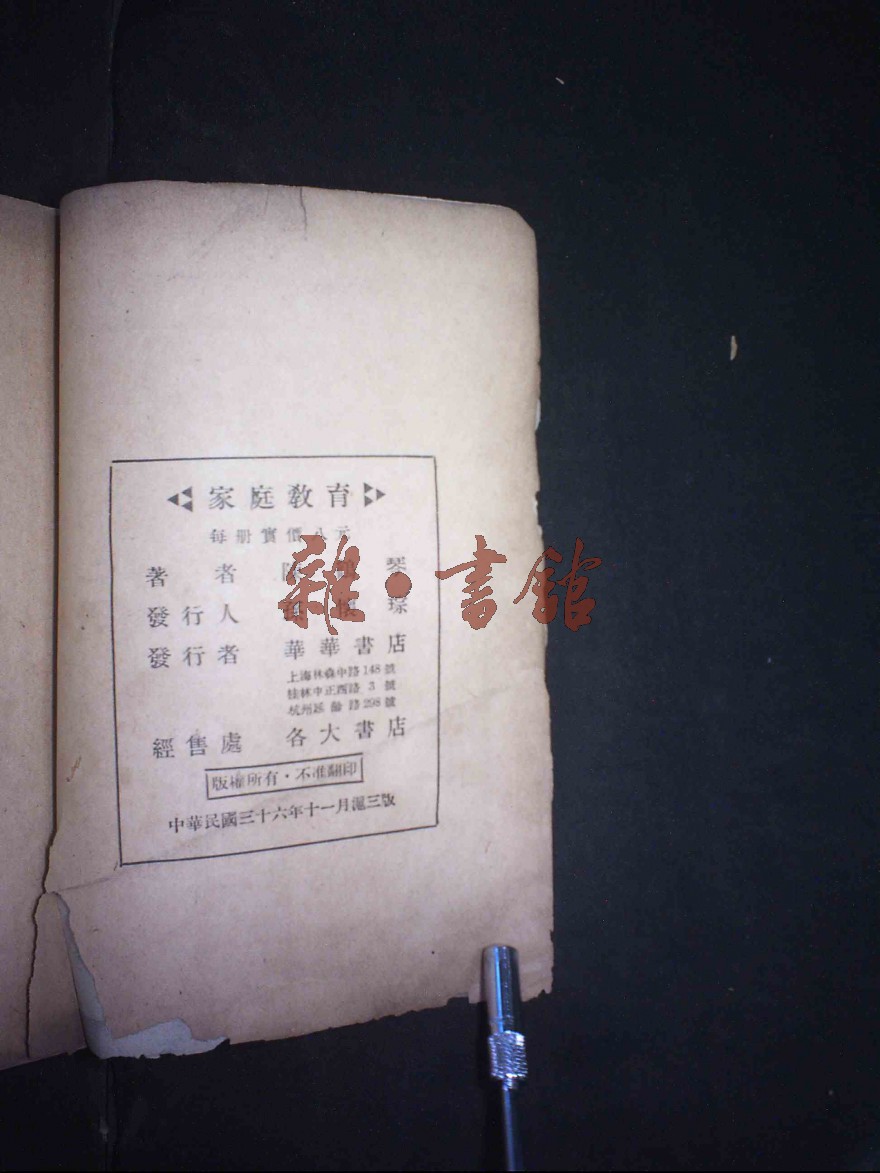 家庭教育
每册實價八元
著者 陳 琴
發行人 孫懷琮
發行者 華華書店
上海林森中路148號
桂林中正西路3號
杭州延齡路298號
經售處 各大書店
版權所有·不准翻印
中華民國三十六年十一月滬三版
雜·書館